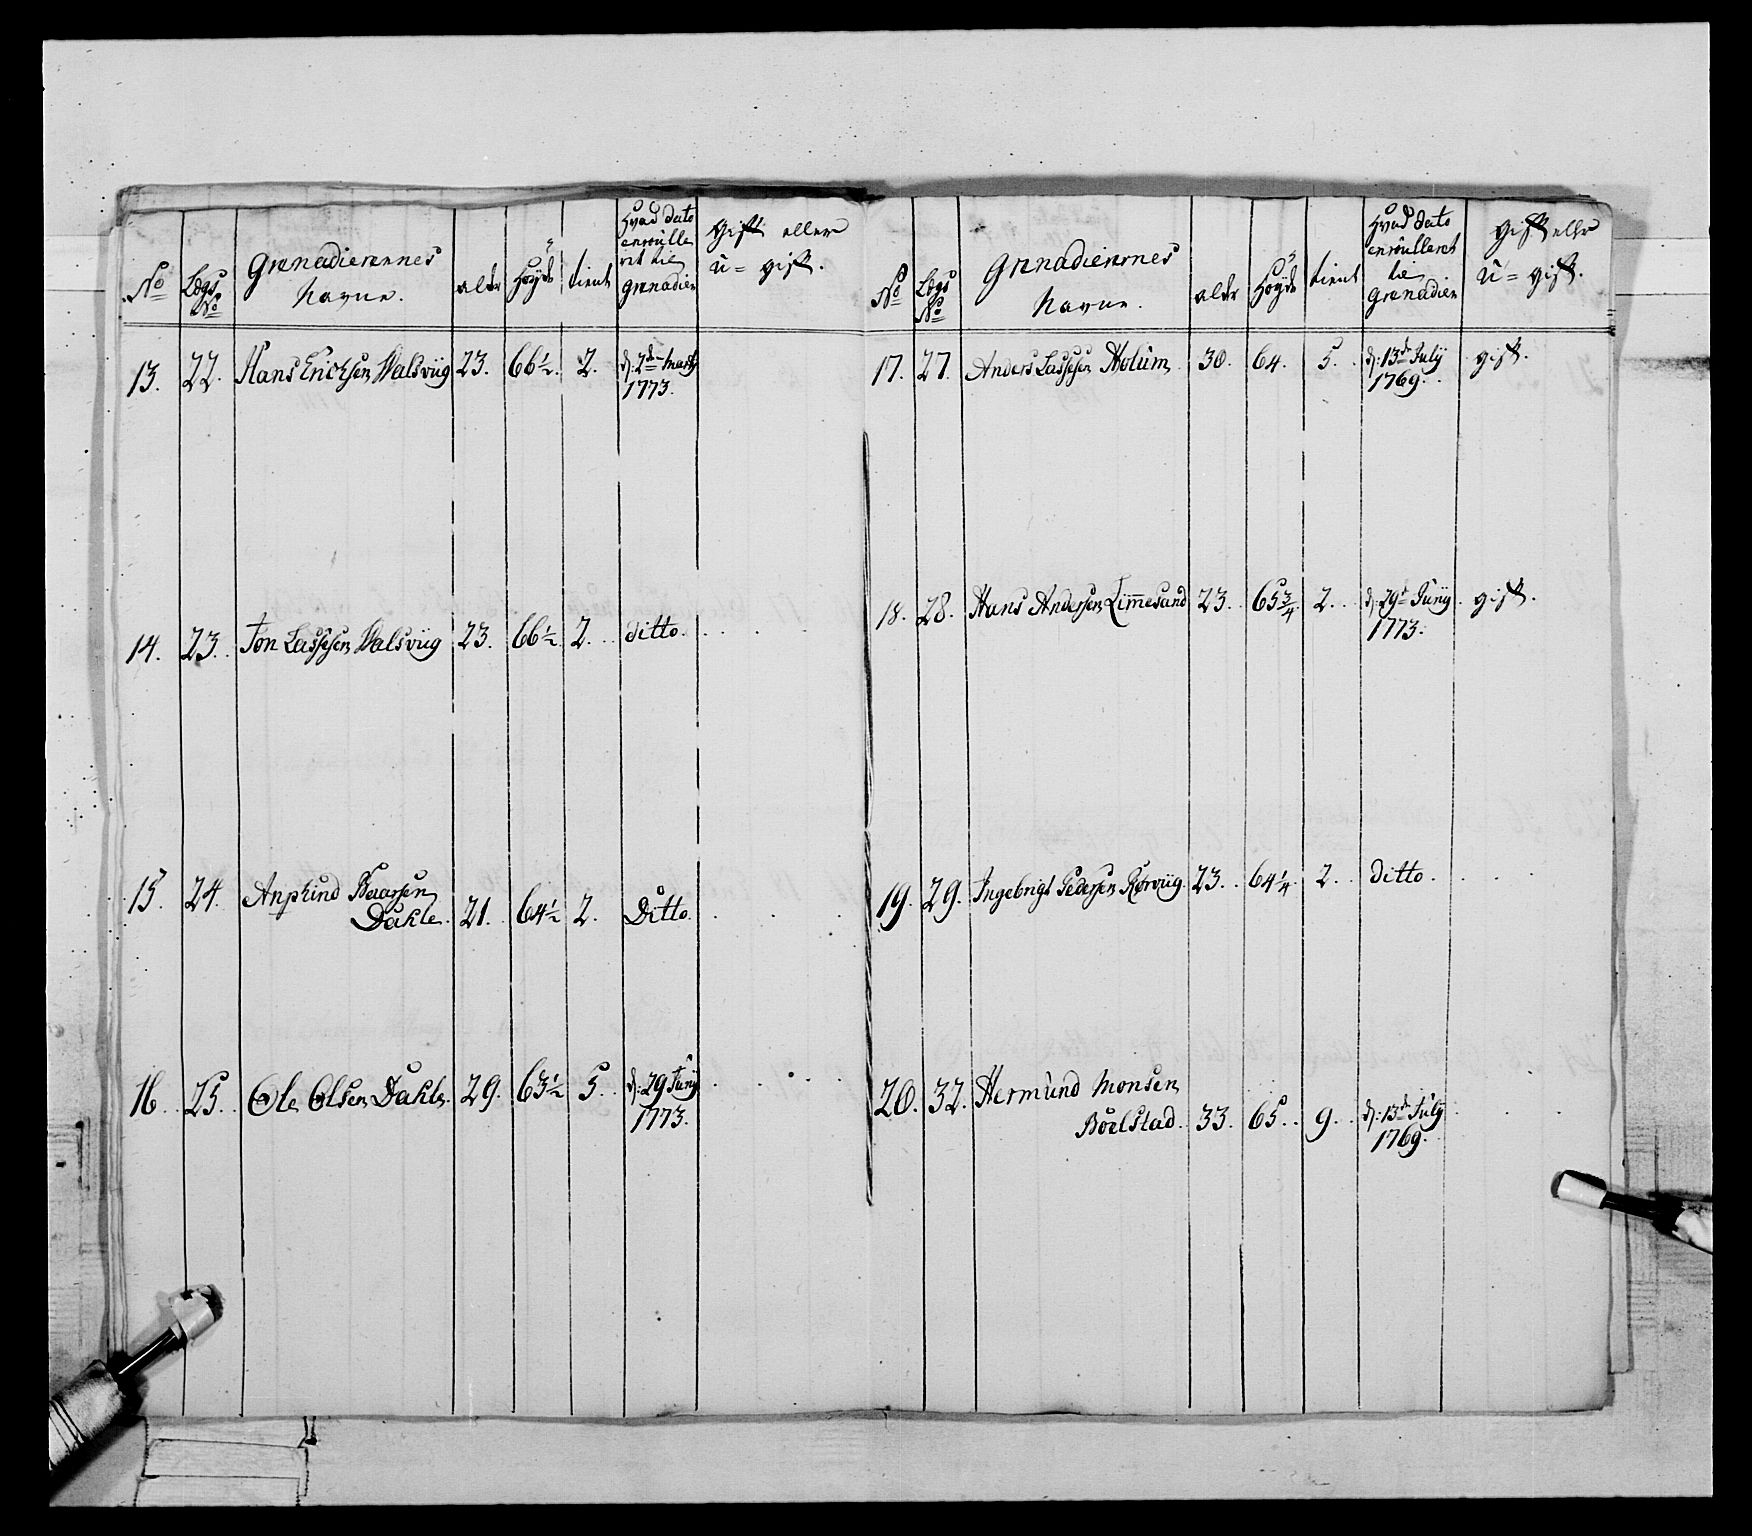 No
Lægs No
Grenadierernes Navne.
alder
Høyde
tient
Hvad dato enroulleret til Grenadier
Gift eller u=gift.
13. 22. Hans Ericksen Walsviig 23. 66½. 2. d: 2de Marty
1773.
14. 23. Jon Lassesen Walsviig 23. 66½ 2. ditto.
15. 24. Anphind Baarsen
Dahle. 21. 64½ 2. Ditto.
16. 25. Ole Olsen Dahle. 29. 63½ 5. d: 29 Juny
1773.
No
Lægs No
Grenadierernes Navne.
alder
Høyde
tient
Hvad dato enroulleret til Grenadier
Gift eller u=gift.
17. 27. Anders Lassesen Holum 30. 64. 5. d: 13de July gift.
1769.
18. 28. Hans Andersen Limesand 23. 65¾ 2. d: 29de Juny gift.
1773.
19. 29. Ingebrigt Pedersen Rørviig. 23. 64¼ 2. ditto.
20. 32. Hermund Monsen
Boelstad. 33. 65. 9. d: 13de July
1769.